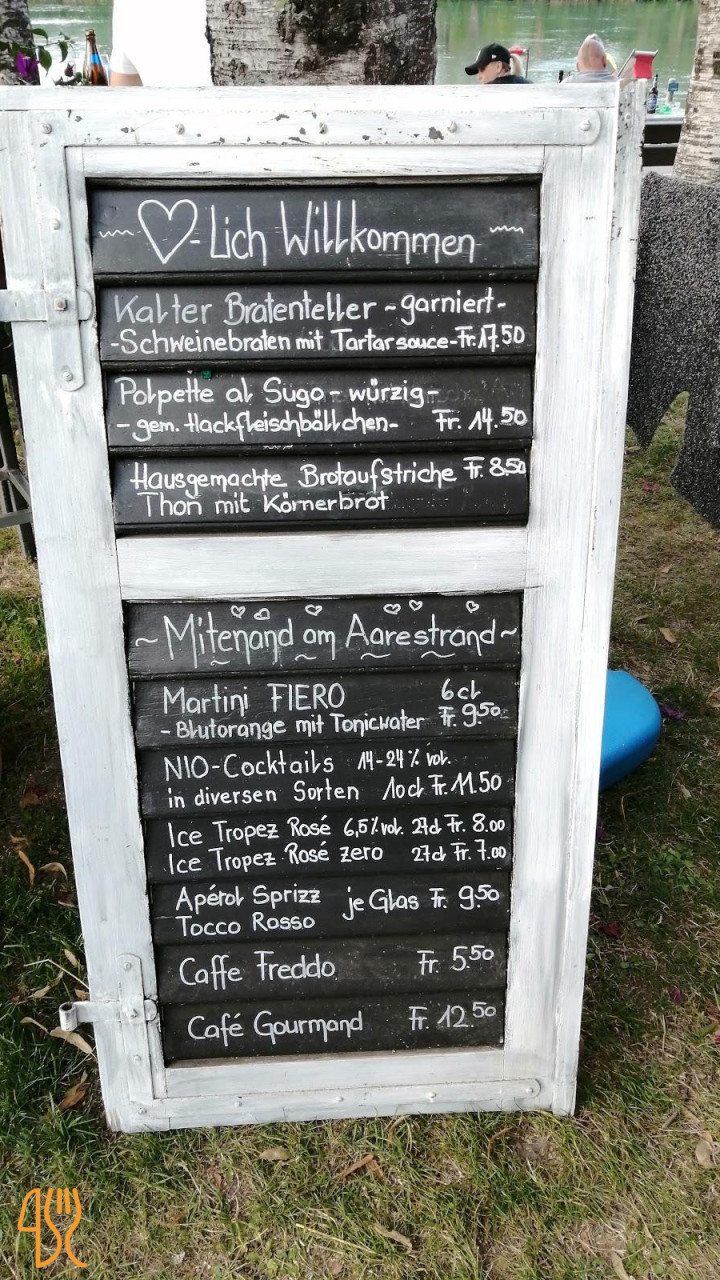 ♡-lich Willkommen
Kalter Bratenteller ~garniert~
-Schweinebraten mit Tartarsauce-Fr.17.50
Polpette al Sugo - würzig -
- gem. Hackfleischbällchen- Fr. 14.50
Hausgemachte Brotaufstriche Fr. 8.50
Thon mit Körnerbrot
~Mitenand am Aarestrand~
Martini FIERO 6cl
- Blutorange mit Tonicwater Fr. 9.50
NIO-Cocktails 14-24% vol.
in diversen Sorten 10cl Fr. 11.50
Ice Tropez Rosé 6,5%vol. 27cl Fr. 8.00
Ice Tropez Rosé zero 27cl Fr. 7.00
Apérol Sprizz je Glas Fr. 9.50
Tocco Rosso
Caffe Freddo Fr. 5.50
Café Gourmand Fr. 12.50